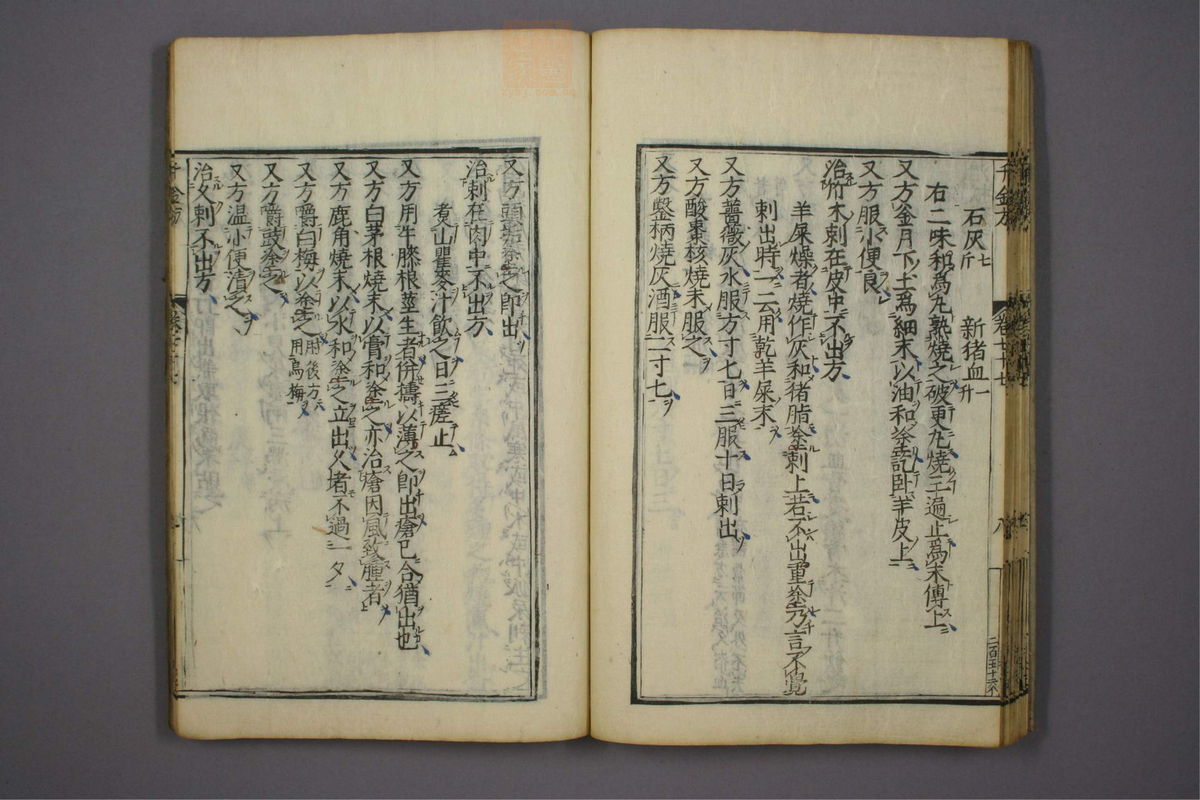 石灰七斤 新猪血一升
右二味和為丸熟燒之破更丸燒三遍止為末傅上
又方釜月下土為細末以油和塗訖臥羊皮上
又方服小便良
治竹木刺在皮中不出方
羊屎燥者燒作灰和猪脂塗刺上若不出重塗乃言不覺
刺出時一云用乾羊屎末
又方薔薇灰水服方寸匕日三服十日刺出
又方酸棗核燒末服之
又方鑿柄燒灰酒服二寸匕
又方頭垢塗之即出
治刺在肉中不出方
煮山瞿麥汁飲之日三瘥止
又方用牛膝根莖生者併擣以薄之即出瘡已合猶出也
又方白茅根燒末以膏和塗之亦治瘡因風致腫者
又方鹿角燒末以水和塗之立出久者不過一夕
又方嚼白梅以塗之肘後方用烏梅
又方嚼豉塗之
又方温小便漬之
治久刺不出方
千金方
卷七十七
八
二百五十六
千金方